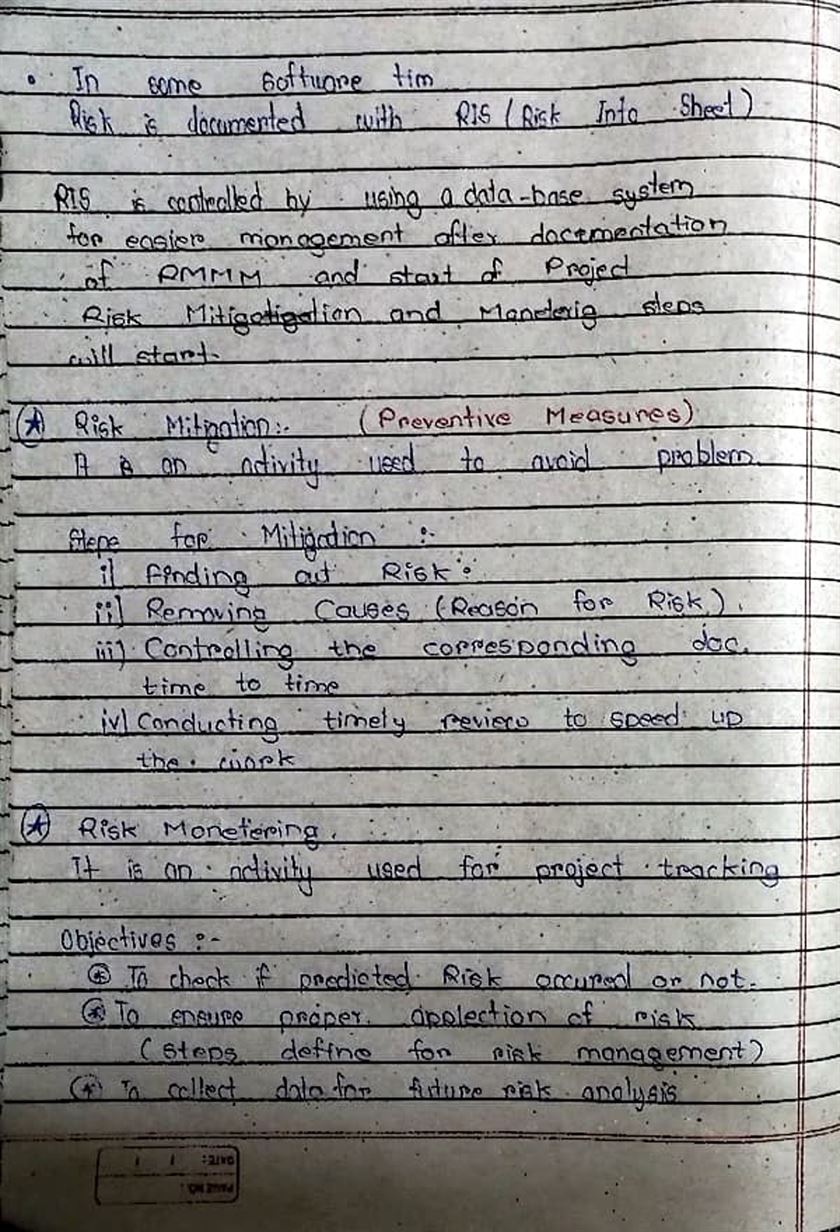 • In some software tim
Risk is documented with RIS (Risk Info Sheet)
RIS is controlled by using a data-base system
for easier management after docementation
of RMMM and start of Project
Risk Mitigatigation and Monderig steps
will start.
★ Risk Mitigation:- (Preventive Measures)
It is an activity used to avoid problem
Steps for Mitigation :-
i] finding out Risk.
ii] Removing Causes (Reason for Risk).
iii) Controlling the corresponding doc.
time to time
iv] Conducting timely review to speed up
the work
★ Risk Monetering.
It is an activity used for project tracking
Objectives :-
★ To check if predicted Risk occured or not.
★ To ensure proper applection of risk
(steps define for risk management)
★ To collect data for future risk analysis
PAGE NO.:
DATE: / /